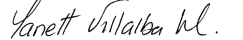 Yanett Villalba M.